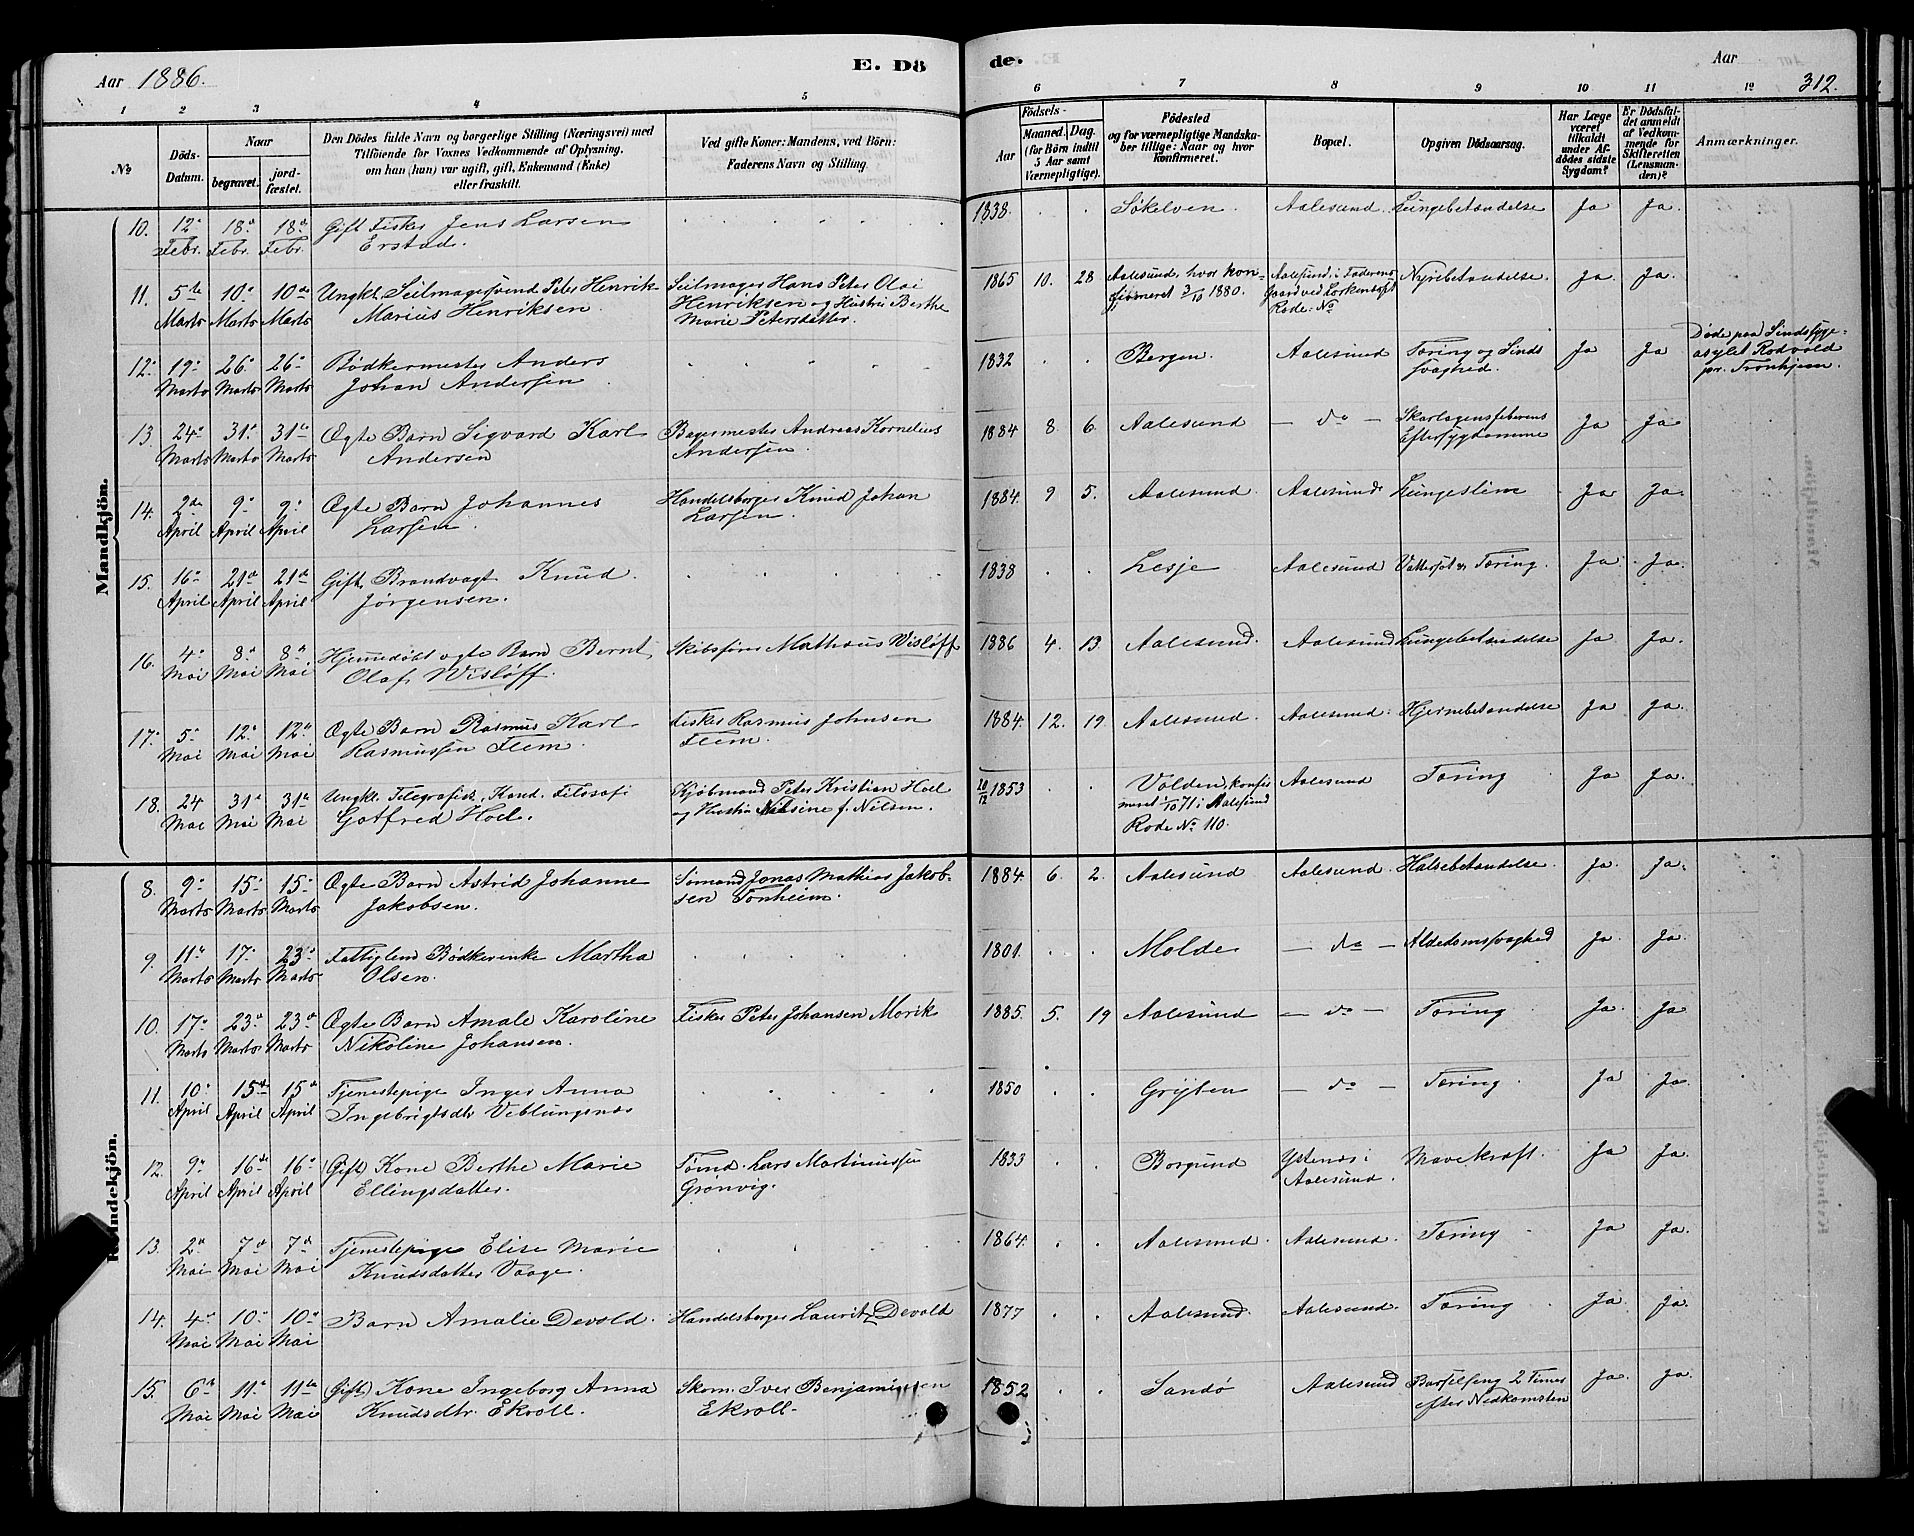 Aar 1886. E. Dö de. Aar 312.
1 2 3 4 5 6 7 8 9 10 11 12
No
Döds-Datum.
Naar
begravet. jordfæstet.
Den Dödes fulde Navn og borgerlige Stilling (Næringsvei) med
Tilföiende for Voxnes Vedkommende af Oplysning,
om han (hun) var ugift, gift, Enkemand (Enke)
eller fraskilt.
Ved gifte Koner: Mandens, ved Börn:
Faderens Navn og Stilling.
Födsels-
Aar Maaned. Dag.
(for Börn indtil
5 Aar samt
Værnepligtige).
Födested
og for værnepligtige Mandska-
ber tillige: Naar og hvor
konfirmeret.
Bopæl.
Opgiven Dödsaarsag.
Har Læge
været
tilkaldt
under Af-
dödes sidste
Sygdom?
Er Dödsfal-
det anmeldt
af Vedkom-
mende for
Skifteretten
(Lensman-
den)?
Anmærkninger.
Mandkjön.
10. 12te 18de 18de Gift Fisker Jens Larsen 1838. Søkelven. Aalesund. Lungebetændelse Ja Ja.
Febr. Febr. Febr. Erstad.
11. 5te 10de 10de Ungkl. Seilmagersvend Peter Henrik Seilmager Hans Peter Olai 1865 10. 28 Aalesund, hvor kon- Aalesund, i Faderens Nyrebetændelse. Ja Ja.
Marts Marts Marts Marius Henriksen. Henriksen og Hustru Berthe firmeret 3/10 1880. Gaard ved
Marie Petersdatter. Rode: No
12. 19. 26. 26. Bödkermester Anders 1832 Bergen. Aalesund Tæring og Sinds Ja Ja Døde paa Sindssyge-
Marts Marts Marts Johan Andersen svaghed. asylet Rodvold
pr. Tronhjem.
13. 24. 31. 31te Ægte Barn Sigvard Karl Bagermester Andreas Kornelius 1884 8. 6. Aalesund — do — Skarlagensfeberens Ja Ja
Marts Marts Marts Andersen Andersen. Eftersygdomme
14. 2den 9. 9. Ægte Barn Johannes Handelsborger Knud Johan 1884. 9 5. Aalesund. Aalesund Lungeslim Ja Ja.
April April April Larsen. Larsen.
15. 16. 21de 21de Gift Brandvagt Knud 1838 Lesje Aalesund Vattersot og Tæring. Ja Ja.
April April April Jörgensen.
16. 4. 8de 8de Hjemedöbt ægte Barn Bernt Skibsfører Mathæus Wisløff 1886 4. 13 Aalesund. Aalesund Lungebetændelse Ja Ja.
Mai Mai Mai Olaf Wisløff.
17. 5. 12. 12te Ægte Barn Rasmus Karl Fisker Rasmus Johnsen 1884. 12. 19. Aalesund. Aalesund. Hjernebetændelse Ja Ja.
Mai Mai Mai Rasmussen Flem. Flem.
18. 24 31. 31te Ungkl. Telegrafist, Kand. Filosofi Kjöbmand Peter Kristian Hoel 20/12 1853 Volden, konfir Aalesund Tæring Ja Ja.
Mai Mai Mai Gotfred Hoel. og Hustru Nilsine f. Nilsen. meret 1/10 71 i Aalesund
Rode No 110.
Kvindekjön.
8. 9. 15. 15. Ægte Barn Astrid Johanne Sömand Jonas Mathias Jakob- 1884. 6. 2. Aalesund Aalesund. Halsebetændelse. Ja. Ja.
Marts Marts Marts Jakobsen. sen Tonheim.
9. 11te 17. 23de Fattiglem Bødkerenke Martha 1801. Molde — do — Alderdomssvaghed Ja. Ja.
Marts Marts Marts Olsen.
10. 17. 23de 23de Ægte Barn Amale Karoline Fisker Peter Johansen Morik 1885. 5. 19 Aalesund — do — Tæring Ja. Ja.
Marts Marts Marts Nikoline Johansen.
11. 10. 15de 15de Tjenestepige Inger Anna 1850 Grytten — do — Tæring Ja Ja
April April April Ingebrigtsdtr Veblungsnæs
12. 9. 16de 16. (Gift) Kone Berthe Marie Tömd. Lars Martinussen 1833 Borgund Ystenæs i Mavekræft. Ja Ja.
April April April Ellingsdatter. Grönvig. Aalesund.
13. 2den 7de 7de Tjenestepige Elise Marie 1864. Aalesund. Aalesund. Tæring Ja Ja.
Mai Mai Mai Knudsdatter Vaage.
14. 4de 10de 10de Barn Amalie Devold. Handelsborger Lauritz Devold 1877 Aalesund. Aalesund. Tæring Ja Ja.
Mai Mai Mai
15. 6te 11te 11te (Gift) Kone Ingeborg Anna Skom. Iver Benjaminsen 1852 Sandö Aalesund Barselseng 2 Timer Ja. Ja.
Mai Mai Mai Knudsdtr. Ekroll. Ekroll. efter Nedkomsten